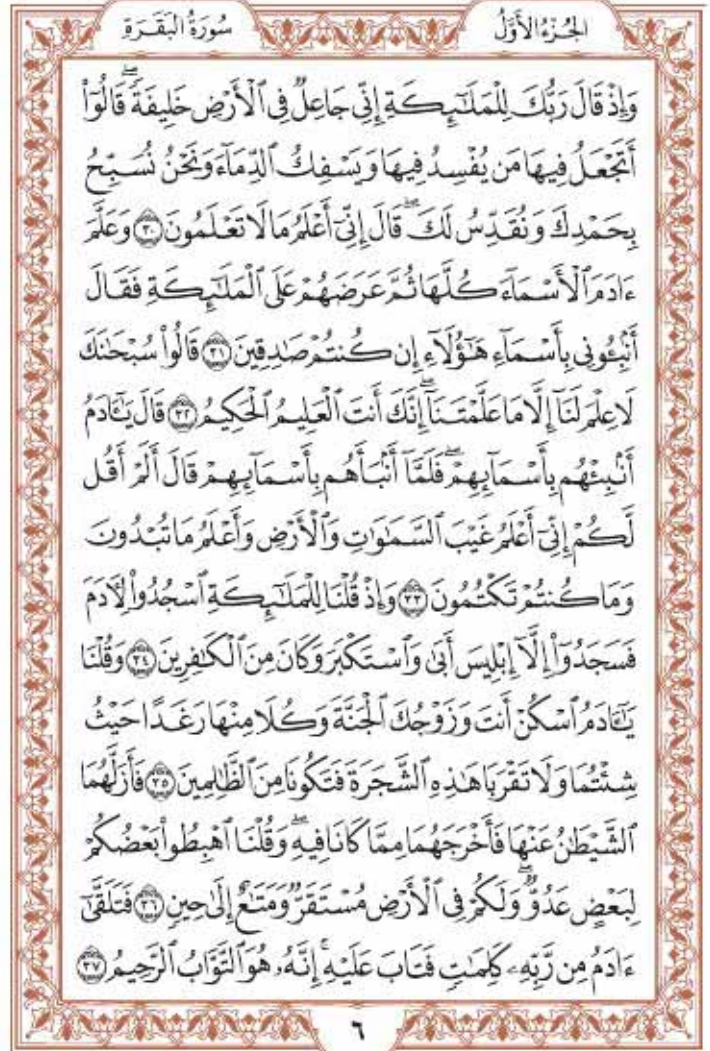 الجُزْءُ الأَوَّلُ
سُورَةُ البَقَرَةِ
وَإِذْ قَالَ رَبُّكَ لِلْمَلَٰٓئِكَةِ إِنِّي جَاعِلٌ فِي ٱلْأَرْضِ خَلِيفَةًۖ قَالُوٓا۟
أَتَجْعَلُ فِيهَا مَن يُفْسِدُ فِيهَا وَيَسْفِكُ ٱلدِّمَآءَ وَنَحْنُ نُسَبِّحُ
بِحَمْدِكَ وَنُقَدِّسُ لَكَۖ قَالَ إِنِّيٓ أَعْلَمُ مَا لَا تَعْلَمُونَ ٣٠ وَعَلَّمَ
ءَادَمَ ٱلْأَسْمَآءَ كُلَّهَا ثُمَّ عَرَضَهُمْ عَلَى ٱلْمَلَٰٓئِكَةِ فَقَالَ
أَنۢبِـُٔونِي بِأَسْمَآءِ هَٰٓؤُلَآءِ إِن كُنتُمْ صَٰدِقِينَ ٣١ قَالُوا۟ سُبْحَٰنَكَ
لَا عِلْمَ لَنَآ إِلَّا مَا عَلَّمْتَنَآۖ إِنَّكَ أَنتَ ٱلْعَلِيمُ ٱلْحَكِيمُ ٣٢ قَالَ يَٰٓـَٔادَمُ
أَنۢبِئْهُم بِأَسْمَآئِهِمْۖ فَلَمَّآ أَنۢبَأَهُم بِأَسْمَآئِهِمْ قَالَ أَلَمْ أَقُل
لَّكُمْ إِنِّيٓ أَعْلَمُ غَيْبَ ٱلسَّمَٰوَٰتِ وَٱلْأَرْضِ وَأَعْلَمُ مَا تُبْدُونَ
وَمَا كُنتُمْ تَكْتُمُونَ ٣٣ وَإِذْ قُلْنَا لِلْمَلَٰٓئِكَةِ ٱسْجُدُوا۟ لِـَٔادَمَ
فَسَجَدُوٓا۟ إِلَّآ إِبْلِيسَ أَبَىٰ وَٱسْتَكْبَرَ وَكَانَ مِنَ ٱلْكَٰفِرِينَ ٣٤ وَقُلْنَا
يَٰٓـَٔادَمُ ٱسْكُنْ أَنتَ وَزَوْجُكَ ٱلْجَنَّةَ وَكُلَا مِنْهَا رَغَدًا حَيْثُ
شِئْتُمَا وَلَا تَقْرَبَا هَٰذِهِ ٱلشَّجَرَةَ فَتَكُونَا مِنَ ٱلظَّٰلِمِينَ ٣٥ فَأَزَلَّهُمَا
ٱلشَّيْطَٰنُ عَنْهَا فَأَخْرَجَهُمَا مِمَّا كَانَا فِيهِۖ وَقُلْنَا ٱهْبِطُوا۟ بَعْضُكُمْ
لِبَعْضٍ عَدُوٌّۖ وَلَكُمْ فِي ٱلْأَرْضِ مُسْتَقَرٌّ وَمَتَٰعٌ إِلَىٰ حِينٍ ٣٦ فَتَلَقَّىٰٓ
ءَادَمُ مِن رَّبِّهِۦ كَلِمَٰتٍ فَتَابَ عَلَيْهِۚ إِنَّهُۥ هُوَ ٱلتَّوَّابُ ٱلرَّحِيمُ ٣٧
٦